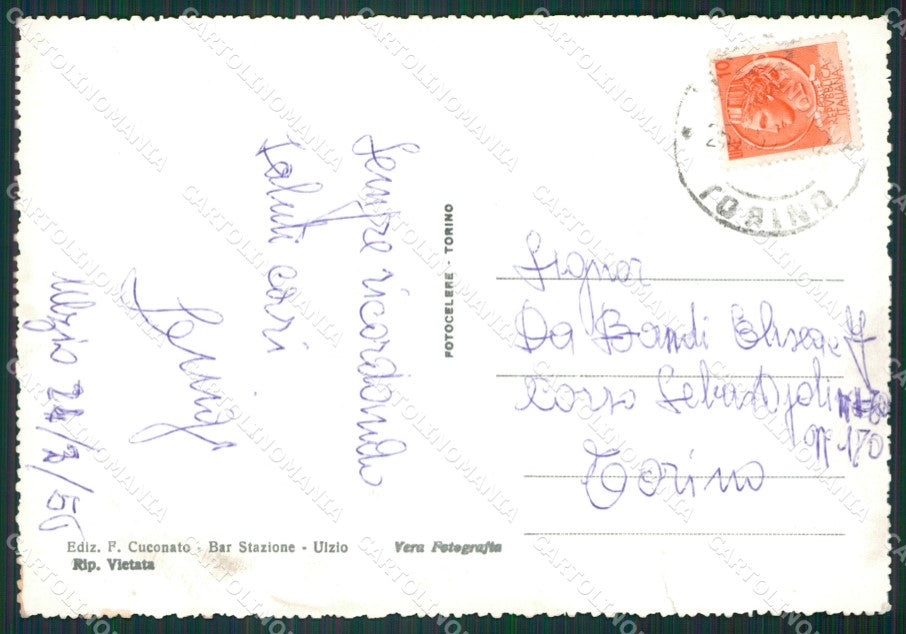 Sempre ricordando
Saluti cari
Luigi
Ulzio 24/7/56
FOTOCELERE - TORINO
Signor
Da Bandi
Corso Sebastopoli
n° 170
Torino
10
REPVBBLICA
ITALIANA
TORINO
Ediz. F. Cuconato - Bar Stazione - Ulzio
Rip. Vietata
Vera Fotografia
CARTOLINOMANIA